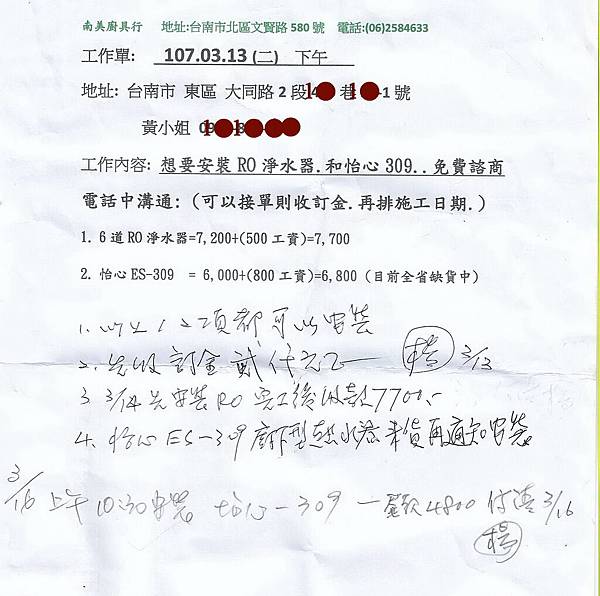 南美廚具行 地址:台南市北區文賢路 580 號 電話:(06)2584633
工作單: 107.03.13 (二) 下午
地址: 台南市 東區 大同路 2 段 巷 -1 號
黃小姐
工作內容: 想要安裝 RO 淨水器.和怡心 309..免費諮商
電話中溝通: (可以接單則收訂金.再排施工日期.)
1. 6 道 RO 淨水器=7,200+(500 工資)=7,700
2. 怡心 ES-309 = 6,000+(800 工資)=6,800 (目前全省缺貨中)
1. 以上 1、2 項都可以安裝
2. 先收訂金貳仟元正 楊 3/13
3 3/14 先安裝 RO 完工後收款7700.-
4. 怡心 ES-309 廚下型熱水器 來貨再通知安裝
3/16 上午 10:30 安裝 怡心-309 一 4800 付清 3/16
楊